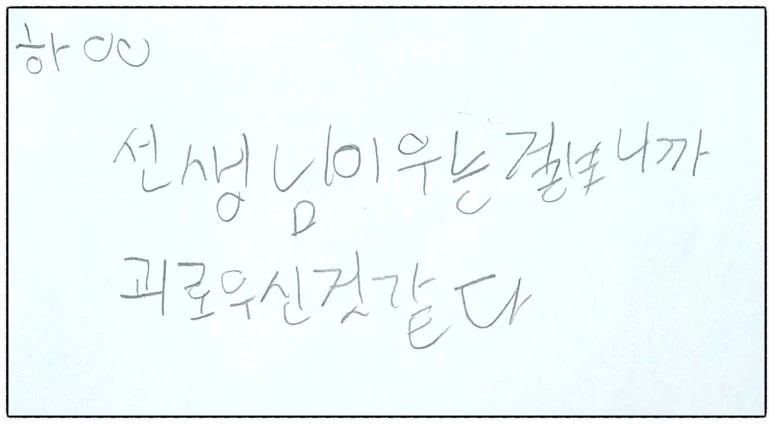 하○○
선생님이 우는걸보니까
괴로우신것같다